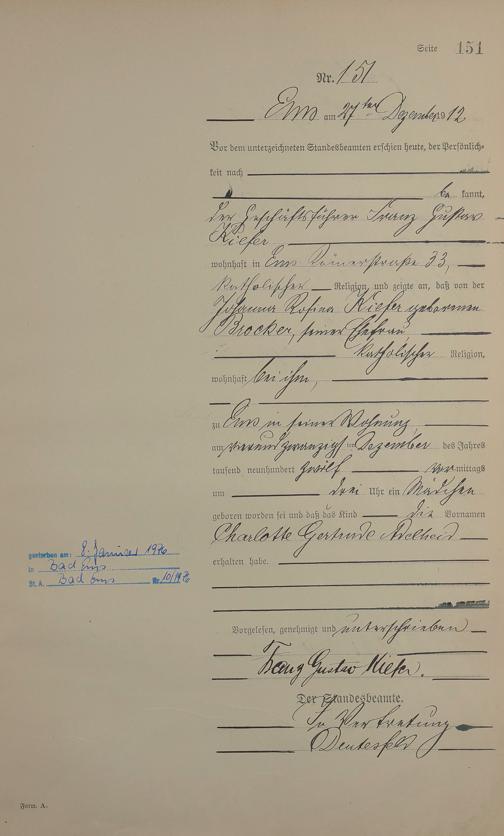 Seite 151
Nr. 151
Ems am 27ten Dezember 1912
Vor dem unterzeichneten Standesbeamten erschien heute, der Persönlich-
keit nach
be kannt,
der Geschäftsführer Franz Gustav
Kiefer
wohnhaft in Ems Römerstraße 33,
katholischer Religion, und zeigte an, daß von der
Johanna Rosina Kiefer geborenen
Brocker, seiner Ehefrau
katholischer Religion,
wohnhaft bei ihm,
zu Ems in seiner Wohnung
am vierundzwanzigsten Dezember des Jahres
tausend neunhundert zwölf vor mittags
um drei Uhr ein Mädchen
geboren worden sei und daß das Kind die Vornamen
Charlotte Gertrude Adelheid
erhalten habe.
gestorben am: 8. Januar 1976
in Bad Ems
St. A. Bad Ems Nr. 10/1976
Vorgelesen, genehmigt und unterschrieben
Franz Gustav Kiefer.
Der Standesbeamte.
In Vertretung
Form. A.